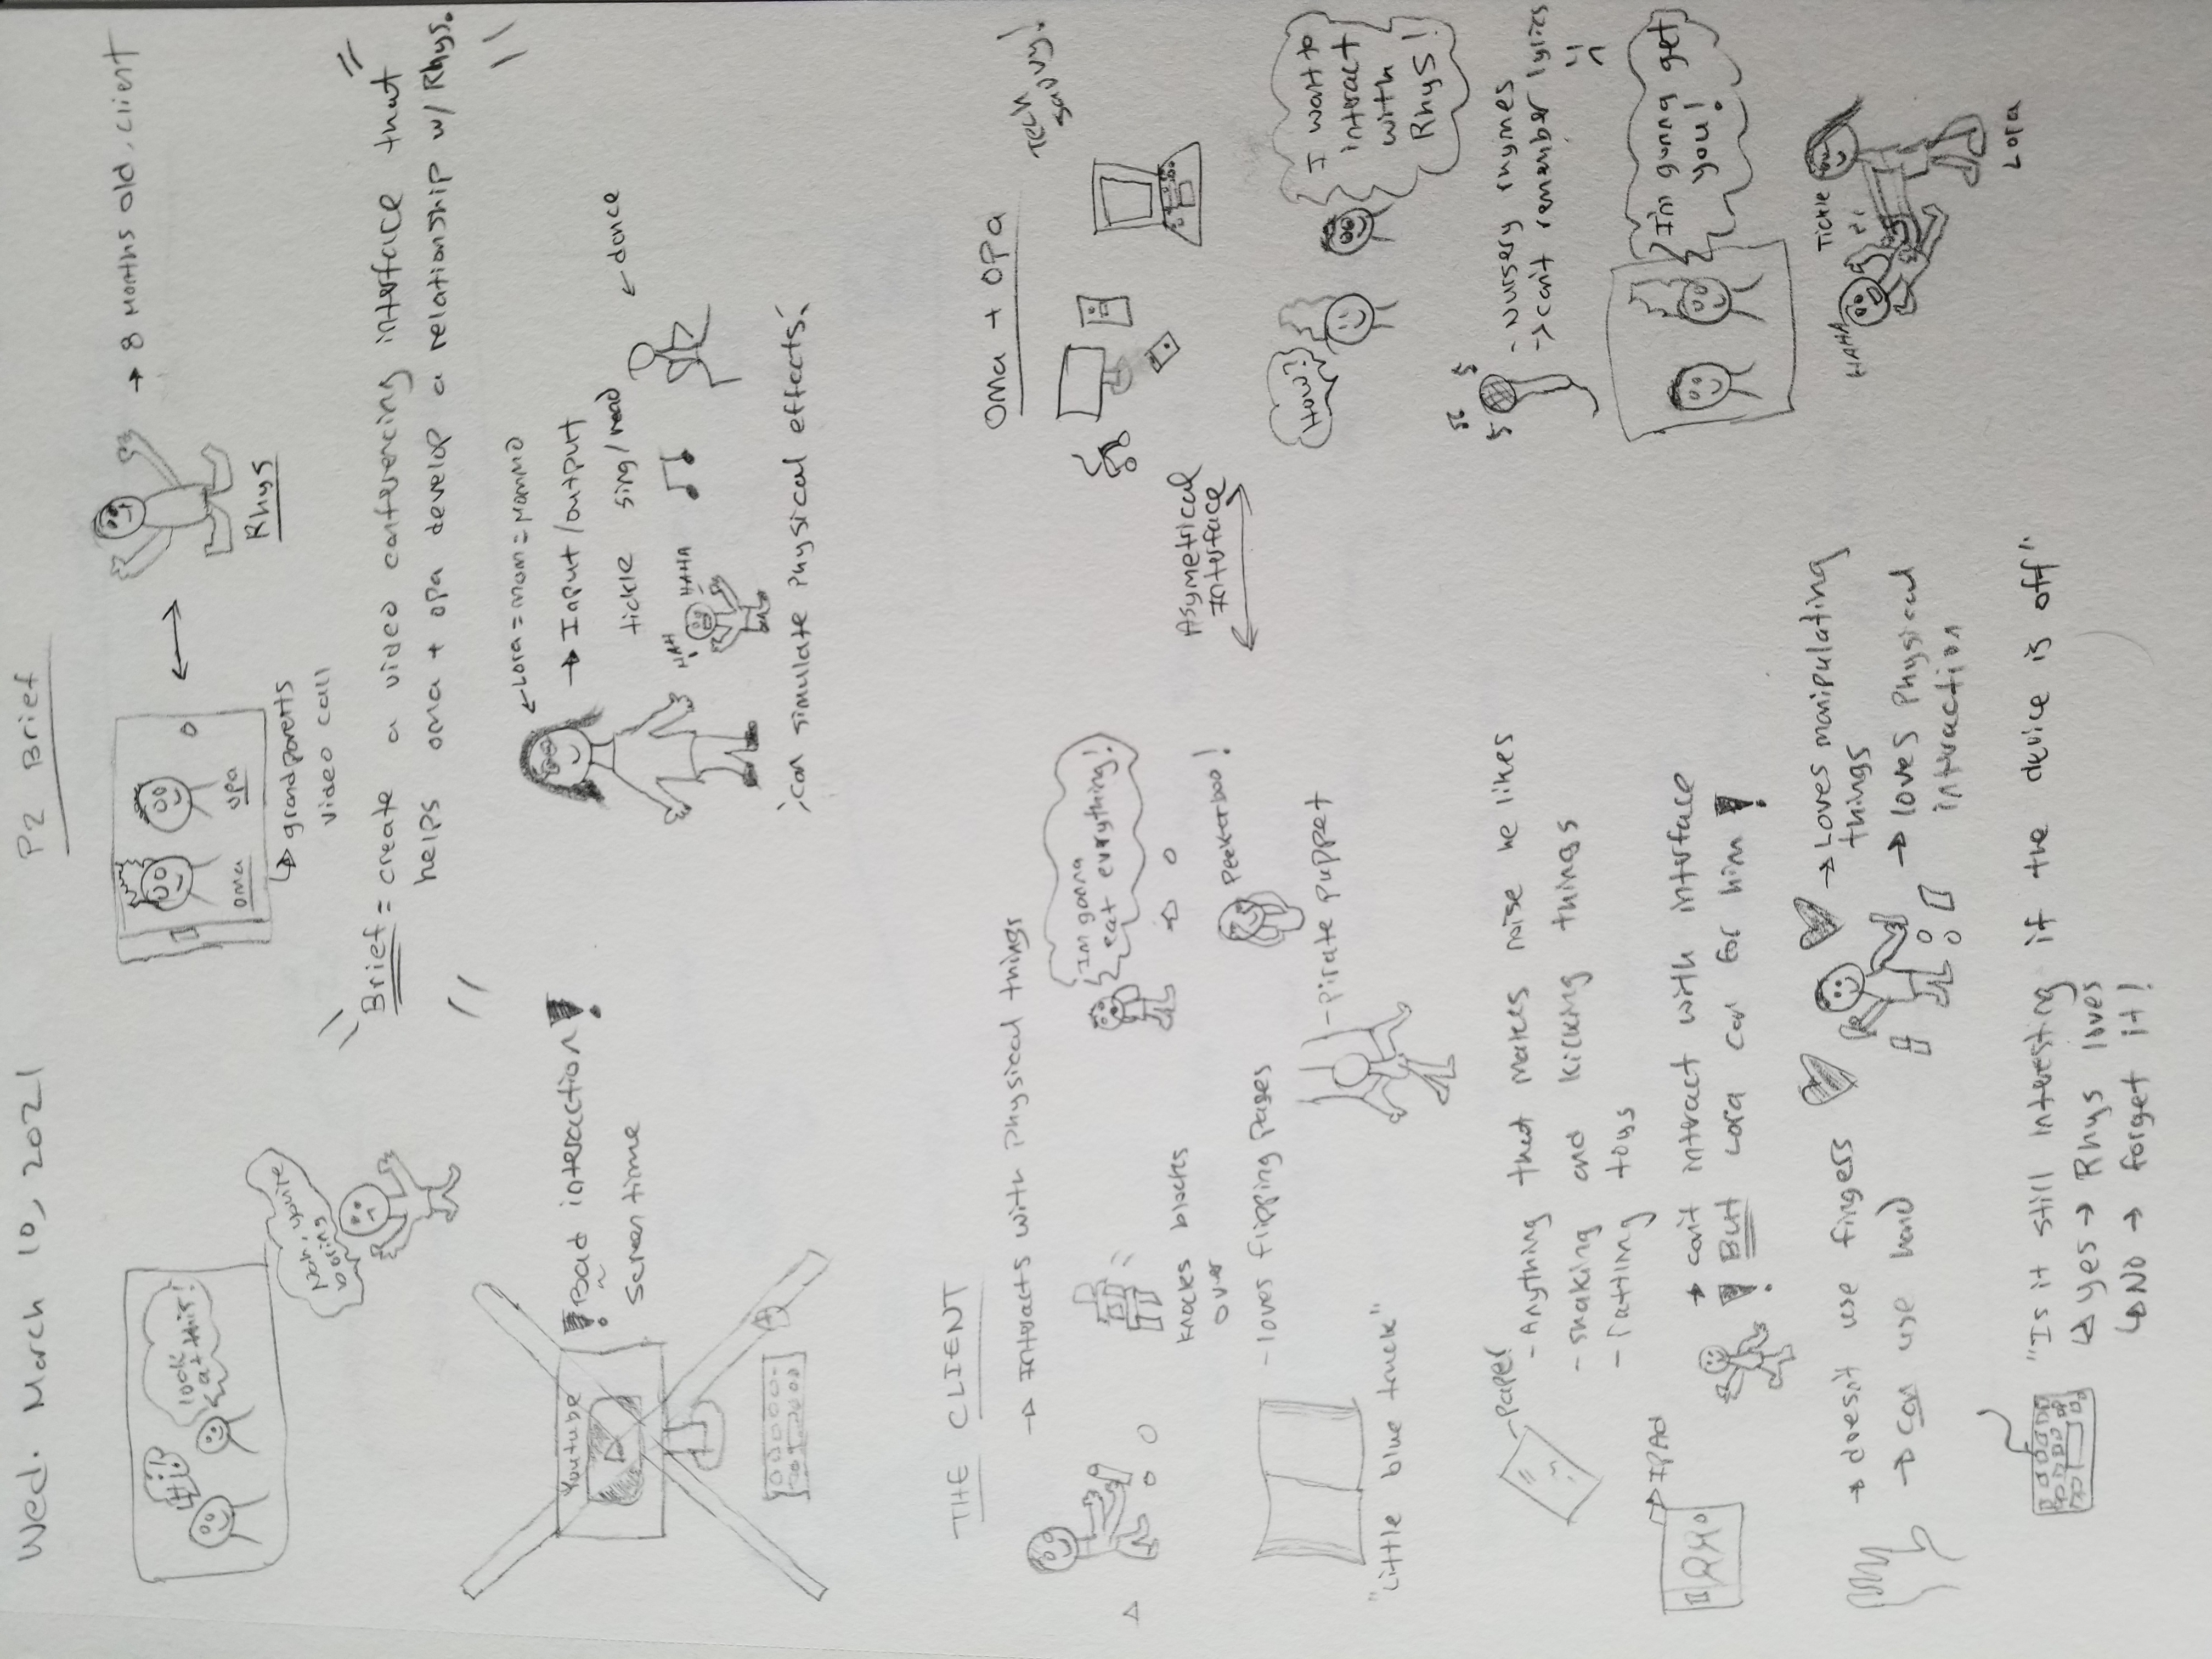 Wed. March 10, 2021
P2 Brief
Hi!
look
at this!
Nah, you're
boring
oma
opa
↳ grandparents
video call
Rhys
→ 8 months old, client
Brief = create a video conferencing interface that
helps oma + opa develop a relationship w/ Rhys.
Youtube
Bad interaction!
screen time
← Lora = mom = mommo
→ Input/output
tickle sing/read
← dance
HAH
HAHA
can simulate physical effects
THE CLIENT
→ Interacts with physical things
knocks blocks
over
I'm gonna
eat everything!
Peek-a-boo!
- loves flipping pages
"Little blue truck"
- Pirate puppet
- paper
- Anything that makes noise he likes
- shaking and kicking things
- rattling toys
→ IPAD
→ can't interact with interface
! But Lora can for him!
→ doesn't use fingers
→ can use hand
→ Loves manipulating
things
→ loves physical
interaction
"Is it still interesting if the device is off"
↳ yes → Rhys loves
↳ No → forget it!
Asymetrical
Interface
Oma + Opa
Tech
savvy!
How?!
I want to
interact
with
Rhys!
- Nursery rhymes
→ can't remember lyrics
I'm gunna get
you!
HAHA
Tickle
Lora